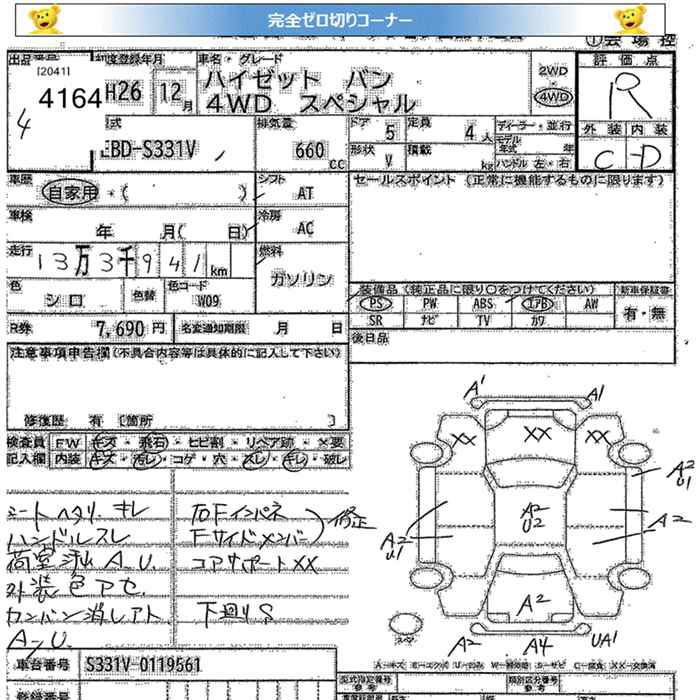 完全ゼロ切りコーナー
①会場控
出品
[2041]
4164
4
初度登録年月
H26 12月
車名・グレード
ハイゼット バン
4WD スペシャル
2WD
・
4WD
評価点
R
外装 内装
C -D
型式
EBD-S331V
排気量
660 CC
ドア 5
定員 4 人
形状 V
積載 kg
ディーラー・並行
モデル年式 年
ハンドル 左・右
車歴
自家用・( )
シフト
AT
セールスポイント (正常に機能するものに限ります)
車検
年 月( 日)
冷房
AC
走行
13万3千941 km
燃料
ガソリン
色
シロ
色替
色コード
W09
装備品(純正品に限り〇をつけてください)
PS PW ABS エアB AW
SR ナビ TV カワ
新車保証書
有・無
R券 7,690 円
名変通知期限 月 日
後日品
注意事項申告欄(不具合内容等は具体的に記入して下さい)
修復歴 有 [箇所 ]
検査員記入欄
FW キズ・飛石・ヒビ割・リペア跡・×要
内装 キズ・汚レ・コゲ・穴・スレ・キレ・破レ
シートヘタリ・キレ
ハンドルスレ
荷室凹 A-U.
外装色アセ
カンバン消しアト
A-U
右Fインパネ
Fサイドメンバー
修正
コアサポートXX
下廻りS
A1 A1
XX XX XX
A2 U1
A2 U1
A2 U2
A2
A2
A2 A4 UA1
A-キズ E-エクボ U-凹み W-補修跡 S-サビ C-腐食 XX-交換済
車台番号
S331V-0119561
登録番号
型式指定番号
参考
類別区分番号
参考